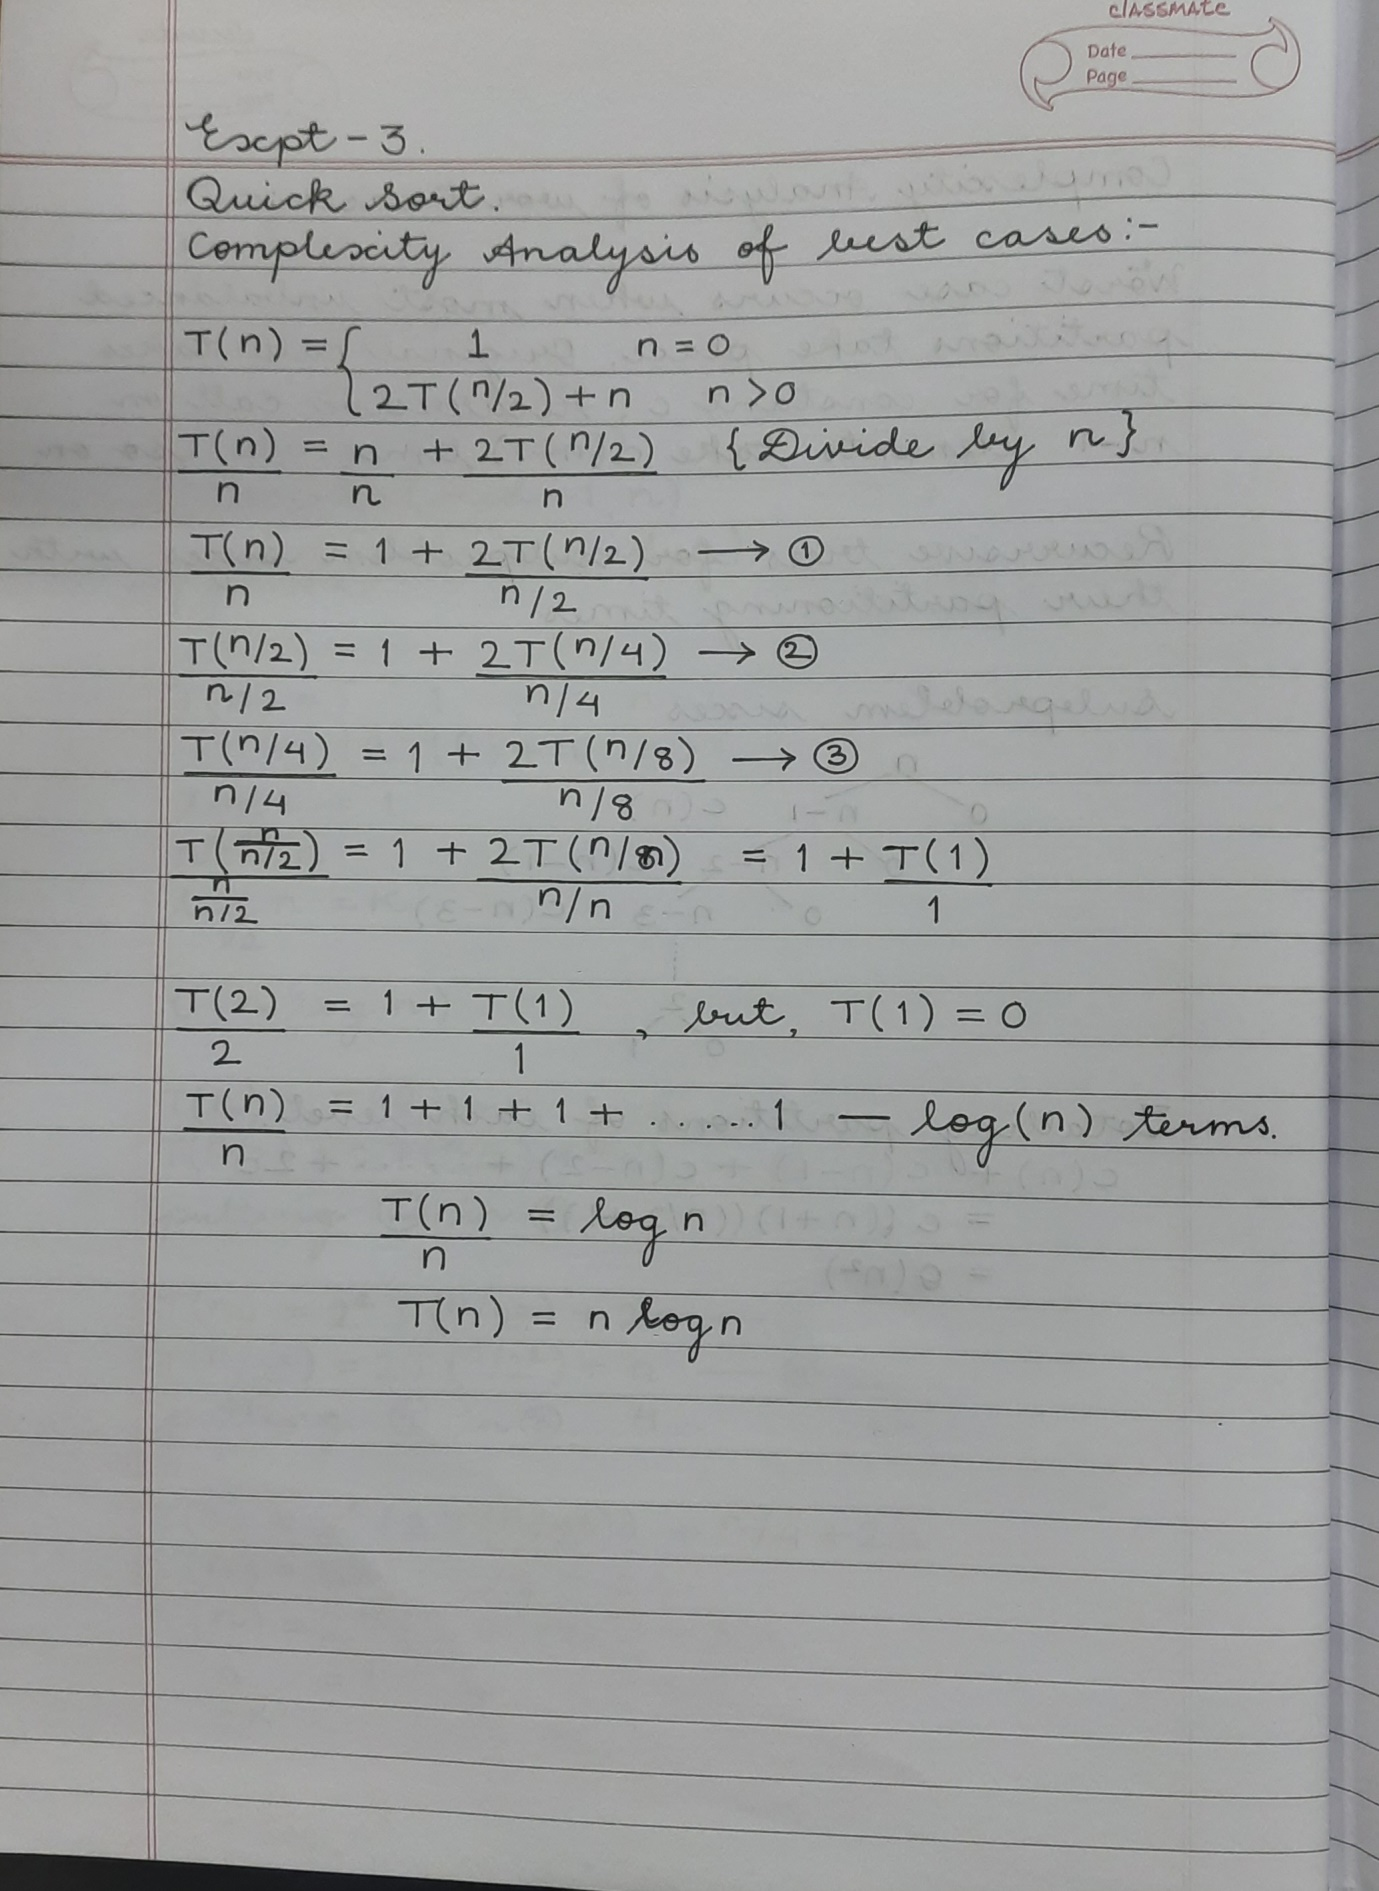 classmate
Date
Page
Expt - 3.
Quick Sort.
Complexity Analysis of best cases:-
T(n) = { 1 n = 0
2T(n/2) + n n > 0
T(n)/n = n/n + 2T(n/2)/n {Divide by n}
T(n)/n = 1 + 2T(n/2)/(n/2) → ①
T(n/2)/(n/2) = 1 + 2T(n/4)/(n/4) → ②
T(n/4)/(n/4) = 1 + 2T(n/8)/(n/8) → ③
T(n/(n/2))/(n/(n/2)) = 1 + 2T(n/n)/(n/n) = 1 + T(1)/1
T(2)/2 = 1 + T(1)/1 , but, T(1) = 0
T(n)/n = 1 + 1 + 1 + ......1 — log(n) terms.
T(n)/n = log n
T(n) = n log n